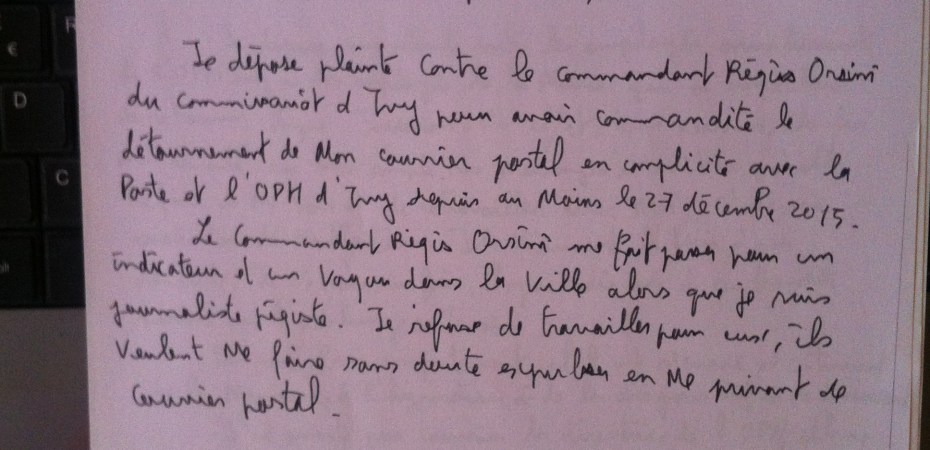 Je dépose plainte contre le commandant Régis Orsini
du commissariat d'Ivry pour avoir commandité le
détournement de Mon courrier postal en complicité avec la
Poste et l'OPH d'Ivry depuis au Moins le 27 décembre 2015.
Le Commandant Régis Orsini me fait passer pour un
indicateur et un Voyou dans la Ville alors que je suis
journaliste pigiste. Je refuse de travailler pour eux, ils
Veulent Me faire sans doute expulser en Me privant de
Courrier postal.
€
D
C